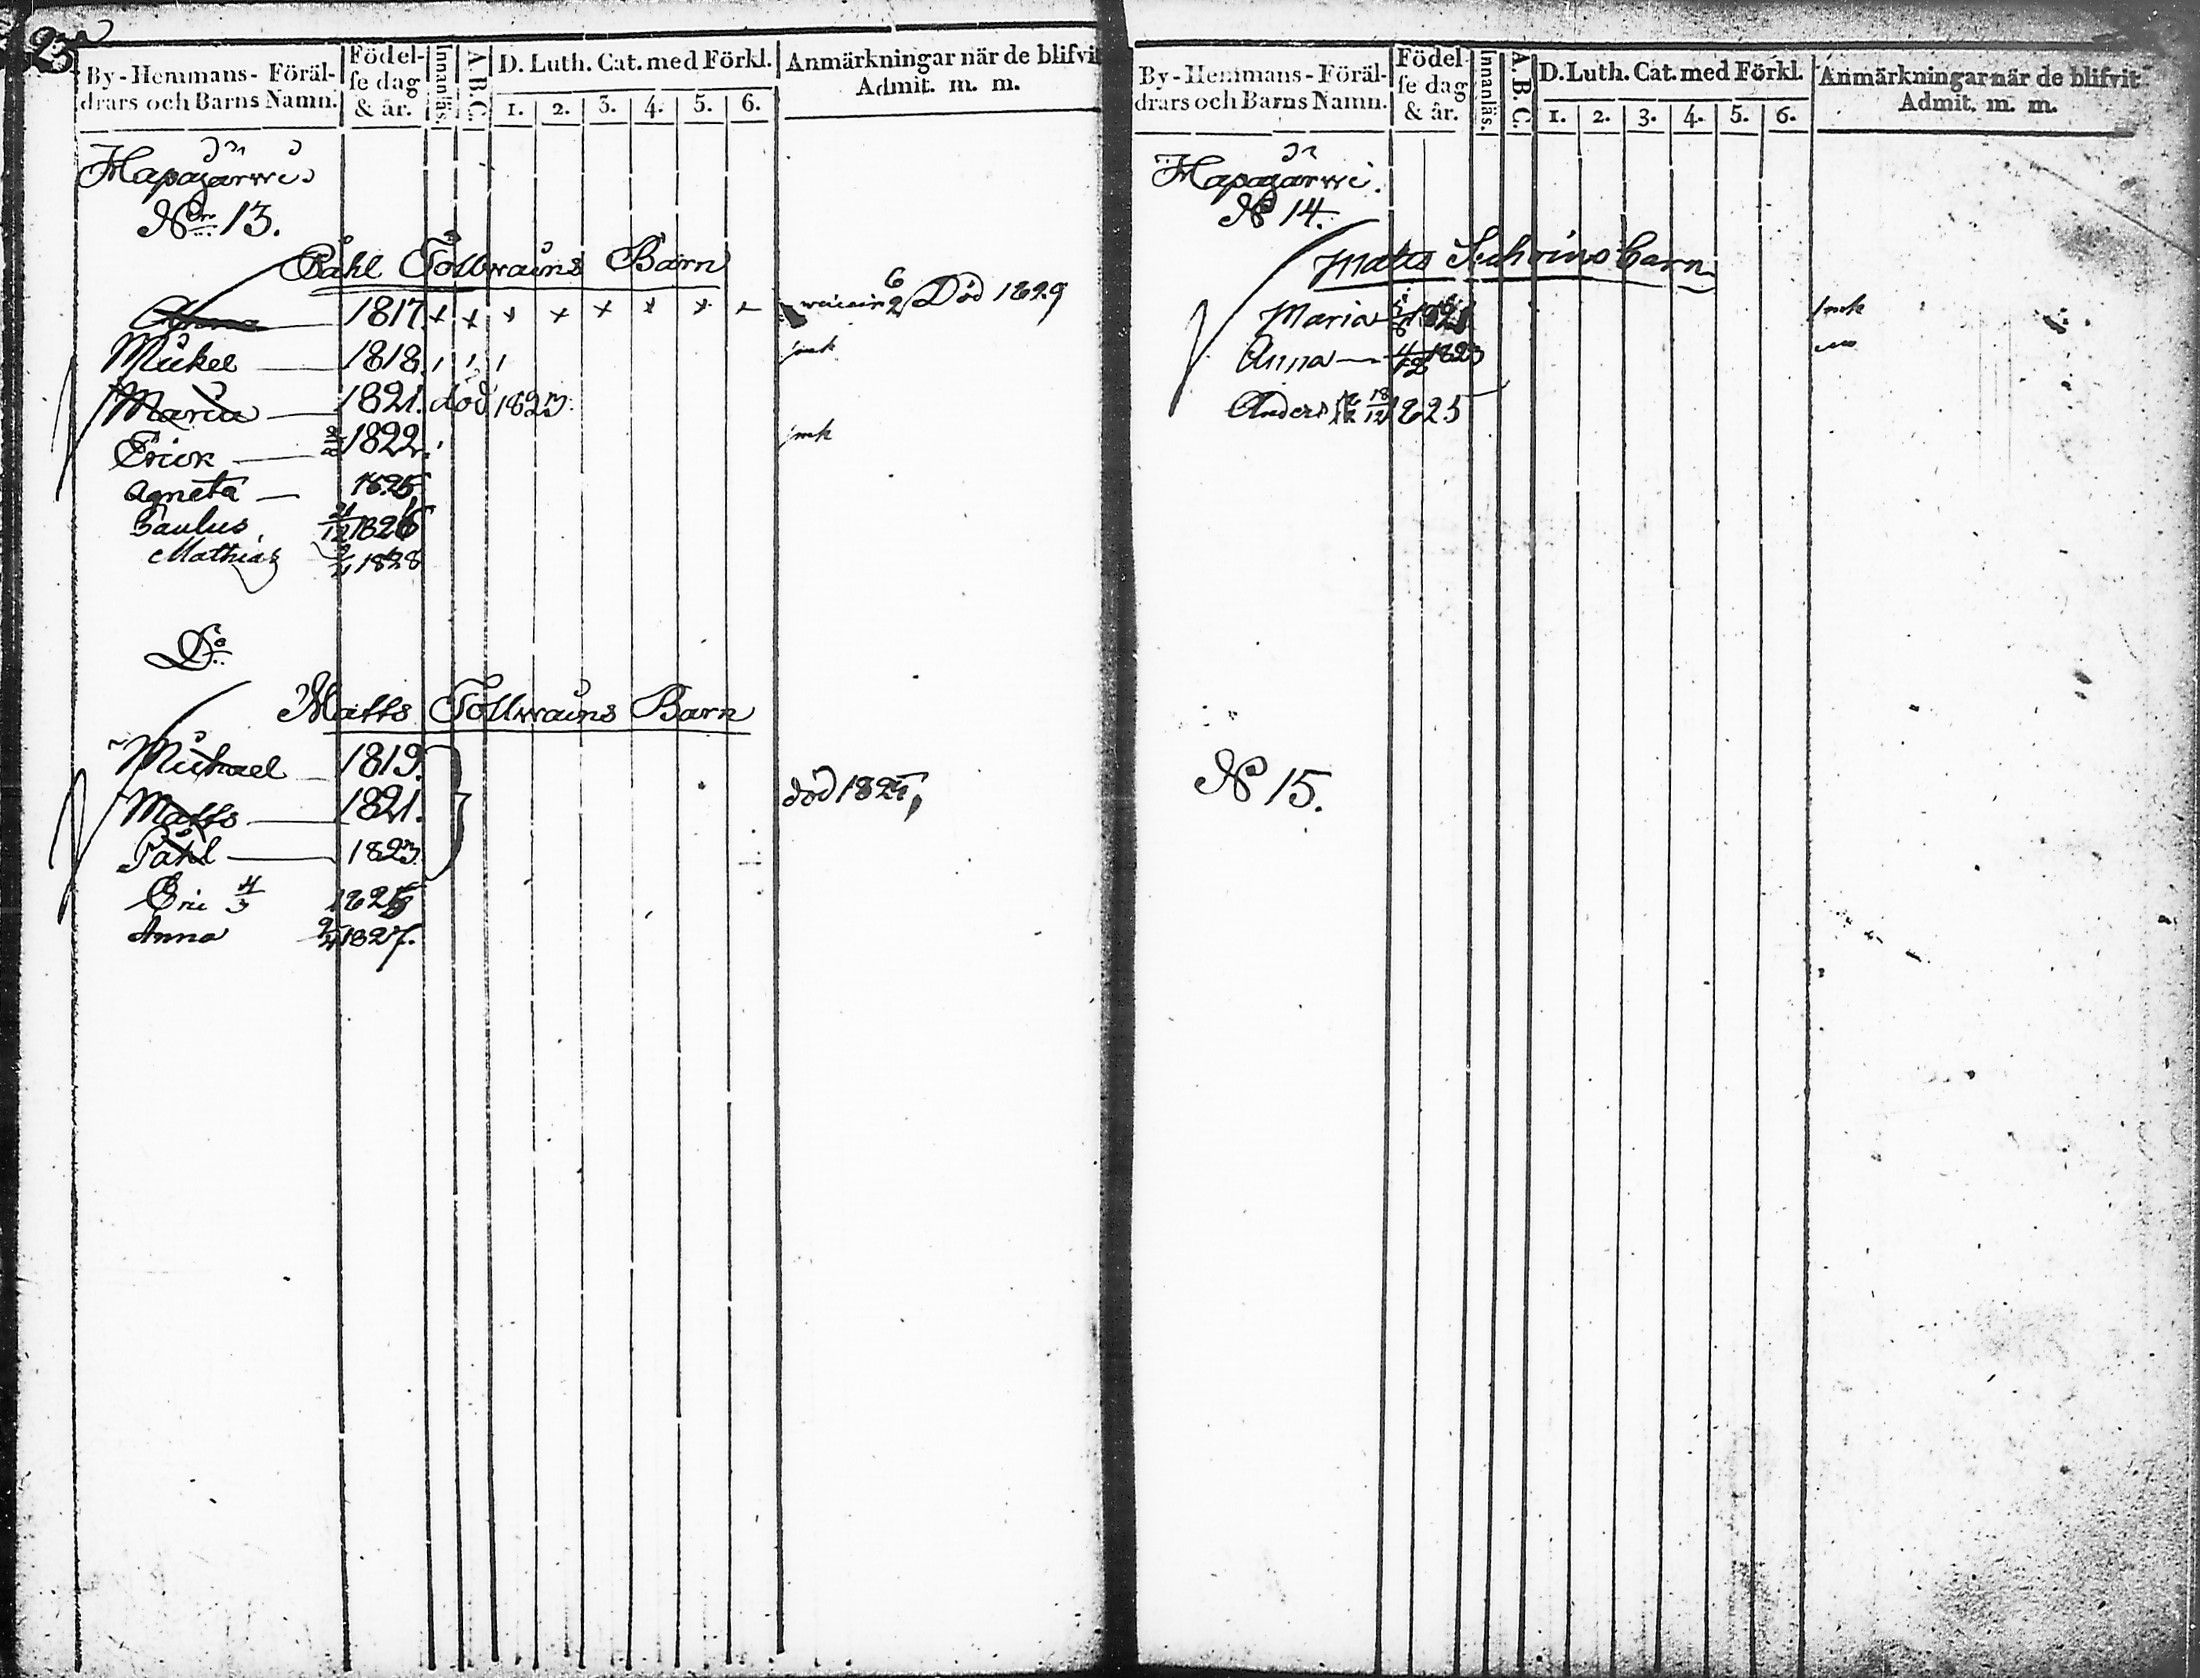 By-Hemmans-Föräl-
drars och Barns Namn.
Födel-
se dag
& år.
Innanläs.
A.B.C.
D. Luth. Cat. med Förkl.
1. 2. 3. 4. 5. 6.
Anmärkningar när de blifvit
Admit. m. m.
Hapajärwi
No 13.
Påhl Tollwains Barn
Anna 1817. x x x x x x x 6/2 Död 1829
Mickel 1818.
Maria 1821. död 1823.
Erick 1822.
Agneta
Paulus 21/12 1826
Mathias 1828
Do
Matts Tollwains Barn
Michael 1819.
Matts 1821.
Påhl 1823.
Eric 4/3
Anna 1827.
By-Hemmans-Föräl-
drars och Barns Namn.
Födel-
se dag
& år.
Innanläs.
A.B.C.
D. Luth. Cat. med Förkl.
1. 2. 3. 4. 5. 6.
Anmärkningar när de blifvit
Admit. m. m.
Hapajärwi.
No 14.
Matts barn
Maria
Anna 1823
Anders 18/12 1825
No 15.